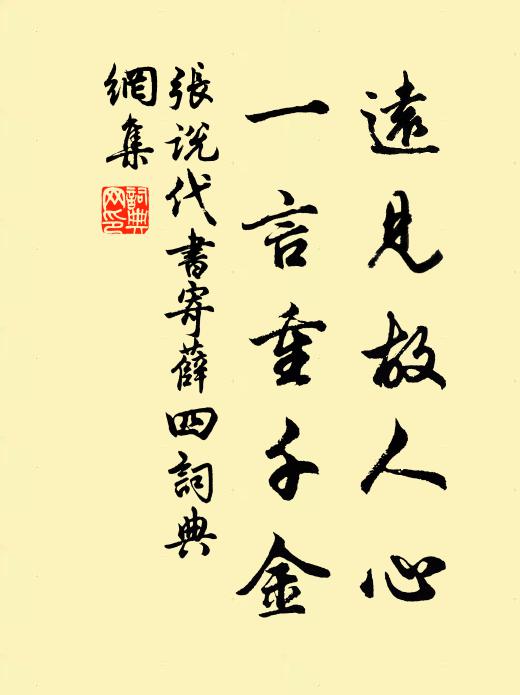 遠見故人心
一言重千金
張說代書寄薛四詞典
網集
詞典
网印